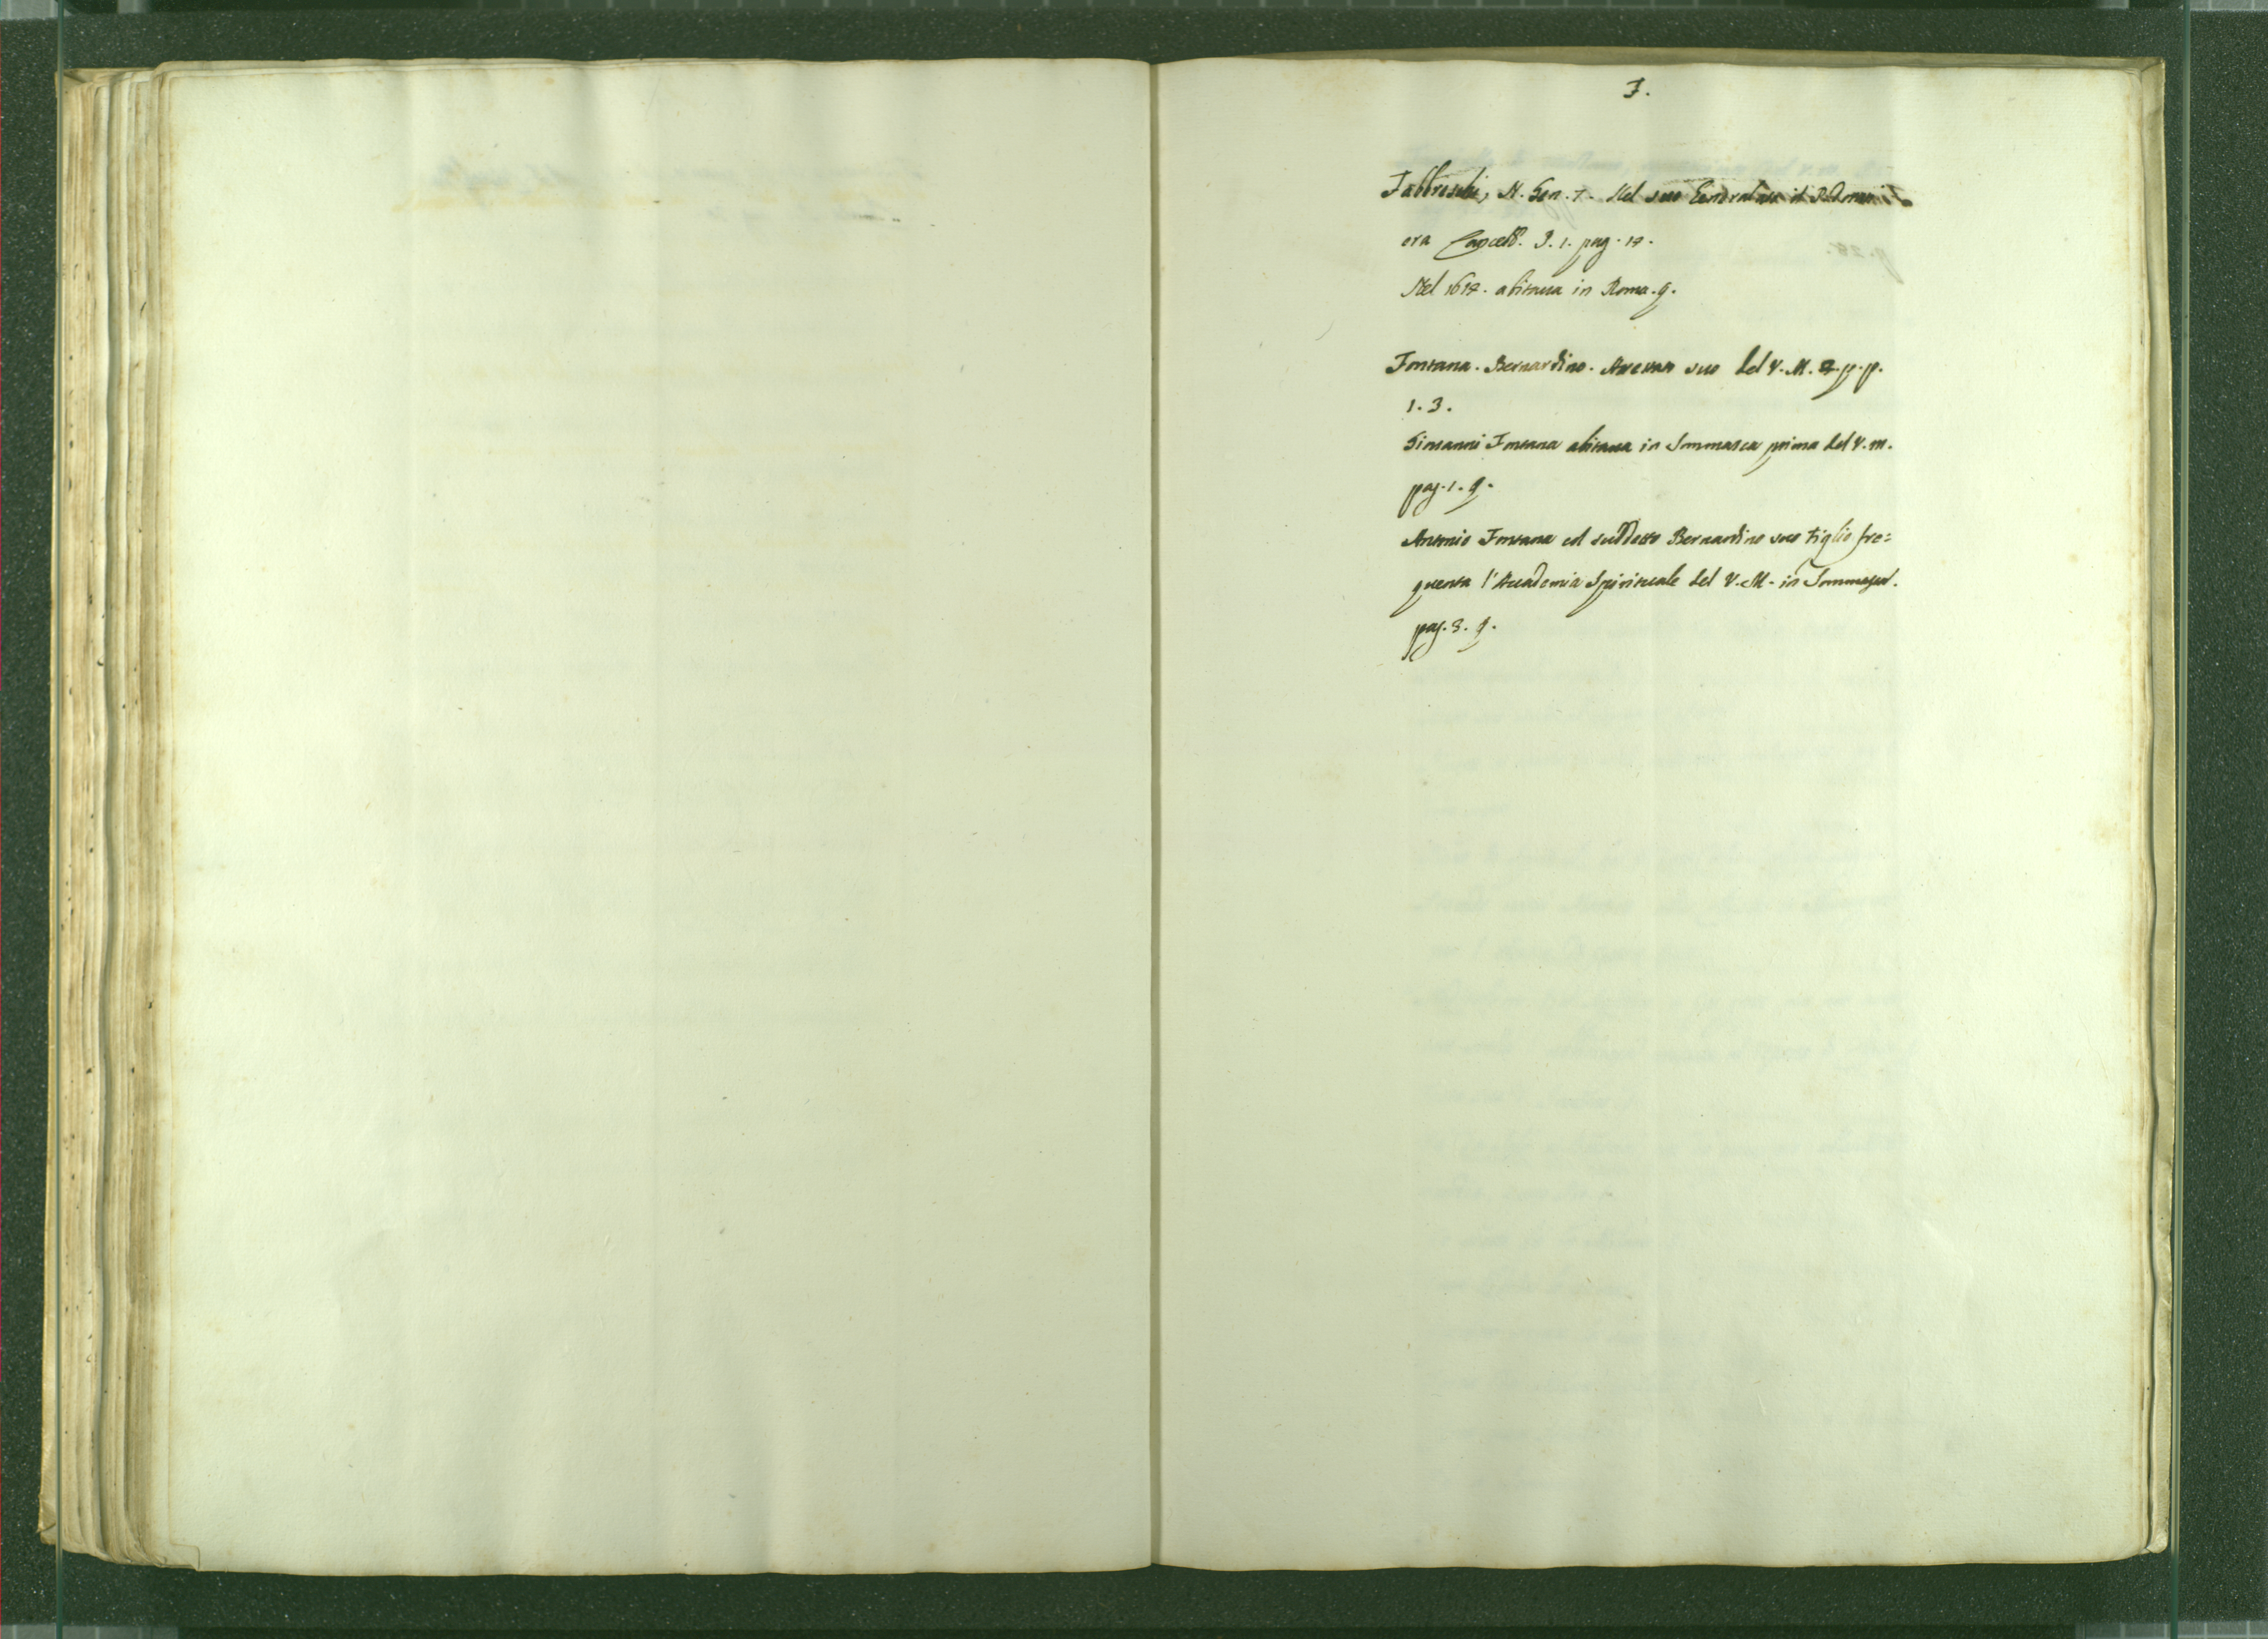 F.
Fabbreschi, N. Gen. 7. Nel suo Generalato il P.
era Cancell. P. 1. pag. 17.
Nel 1617. abitava in Roma. q.
Fontana. Bernardino. suo del V. M. q. p. p.
1. 3.
Giovanni Fontana abitava in Sommasca prima del V. M.
pag. 1. q.
Antonio Fontana col suddetto Bernardino suo figlio fre=
quenta l'Accademia Spirituale del V. M. in
pag. 3. q.